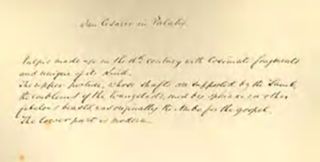 San Cesareo in Palatio.
Pulpit made up in the 16th century with Cosimate fragments
and unique of its kind.
The upper portion, whose shafts are supported by the Lamb,
the emblems of the Evangelists, and by sphinxes or other
fabulous beasts was originally the Ambo for the gospel.
The lower part is modern.